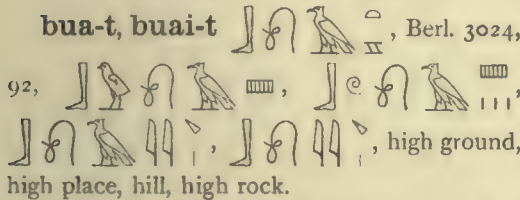 bua-t, buai-t 𓃀𓍯𓄿𓏏, Berl. 3024,
92, 𓃀𓅱𓍯𓄿, 𓃀𓏲𓍯𓄿𓏥,
𓃀𓍯𓄿𓇋𓇋, 𓃀𓍯𓇋𓇋, high ground,
high place, hill, high rock.